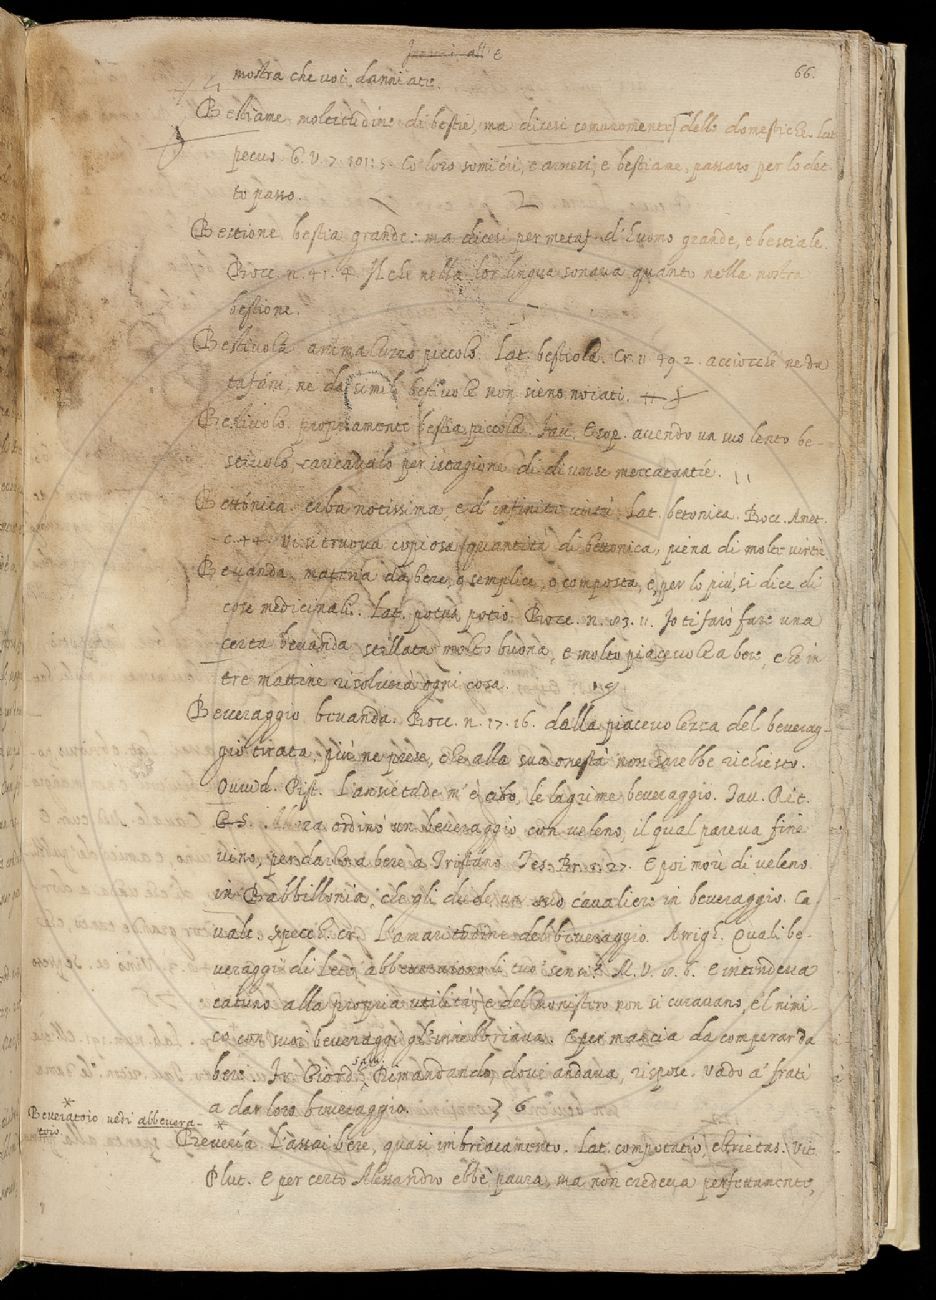 66.
mostra che voi danniate.
Bestiame moltitudine di bestie, ma dicesi comunemente delle domestiche. Lat.
pecus G. V. 7. 101. 5. Co loro somieri, e arnesi, e bestiame, passaro per lo det-
to passo.
Bestione bestia grande: ma dicesi per metaf. d'huomo grande, e bestiale.
Bocc. n. 41. 4. Il che nella lor lingua sonava quanto nella nostra
bestione.
Bestiuola animaluzzo piccolo. Lat. bestiola. Cr. v. 49. 2. acciocchè ne da
tafani, ne da simili bestiuole non sieno noiati.
Bestiuolo. propriamente bestia piccola. Fav. Esop. avendo un suo lento be-
stiuolo caricavalo per istagione di diverse mercatantie.
Bettónica. erba notissima, e d'infinite virtù. Lat. betonica. Bocc. Amet.
c. 44. Vi si truova copiosa quantità di bettonica, piena di molte virtù
Bevanda. materia da bere, o semplice, o composta, e, per lo più, si dice di
cose medicinali. Lat. potus potio. Bocc. n. 83. 11. Io ti farò fare una
certa bevanda stillata molto buona, e molto piacevole a bere, e che in
tre mattine risolverà ogni cosa.
Beveraggio bevanda. Bocc. n. 17. 16. dalla piacevolezza del beverag-
gio tirata, più ne prese, che alla sua onestà non sarebbe richiesto.
Ovvid. Pist. L'ansietade m'è cibo, le lagrime beveraggio. Tav. Rit.
ordinò un beveraggio con veleno, il qual pareva fine
vino, per darlo a bere a Tristano Tes. Br. 1. 27. E poi morì di veleno
in Babbillonia, che gli diede un suo cavaliere in beveraggio. Ca-
valc. specch. cr. L'amaritudine del beveraggio. Arrigh. Quali be-
veraggi di Lete abbeverarono li tuoi sensi? M. V. 10. 6. e intendeva
catuno alla propria utilità, e del monistero non si curavano, e'l nimi-
co con suoi beveraggi gl'innebbriava. E per mancia da comperar da
bere. Fr. Giord. salv. Rimandando, dove andava, rispose. Vado a' frati
a dar loro beveraggio. 6
* Beveratoio vedi abbevera-
toio.
* Beveria L'assai bere, quasi imbriacamento. Lat. compotatio, ebrietas. Vit.
Plut. E per certo Alessandro ebbe paura, ma non credeva perfettamente,